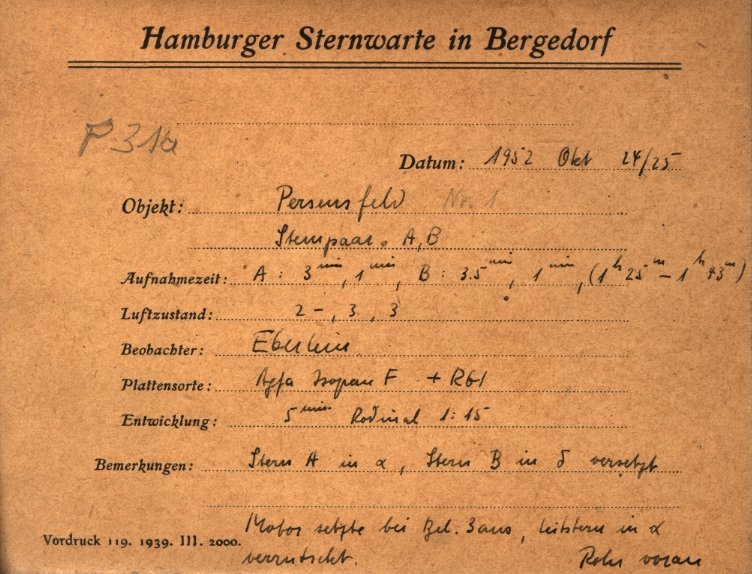 Hamburger Sternwarte in Bergedorf
P 31a
Datum: 1952 Okt 24/25
Objekt: Perseusfeld Nr. 1
Sternpaar. A, B
Aufnahmezeit: A: 3 min, 1 min, B: 3.5 min, 1 min, (1h 25m - 1h 43m)
Luftzustand: 2-, 3, 3
Beobachter: Eberlein
Plattensorte: Agfa Isopan F + RG1
Entwicklung: 5 min Rodinal 1:15
Bemerkungen: Stern A in α, Stern B in δ versetzt
Motor setzte bei Bel. 3 aus, Leitstern in α
Vordruck 119. 1939. III. 2000. verrutscht. Rohr voran